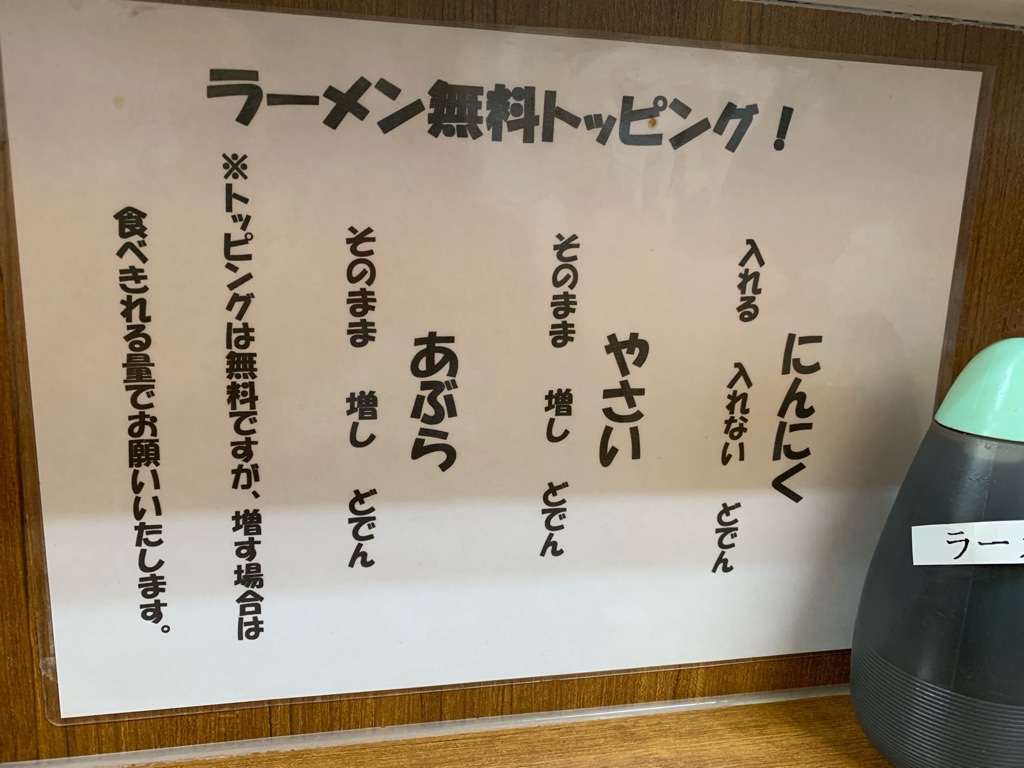 ラーメン無料トッピング!
にんにく
入れる 入れない どでん
やさい
そのまま 増し どでん
あぶら
そのまま 増し どでん
※トッピングは無料ですが、増す場合は
食べきれる量でお願いいたします。
ラー